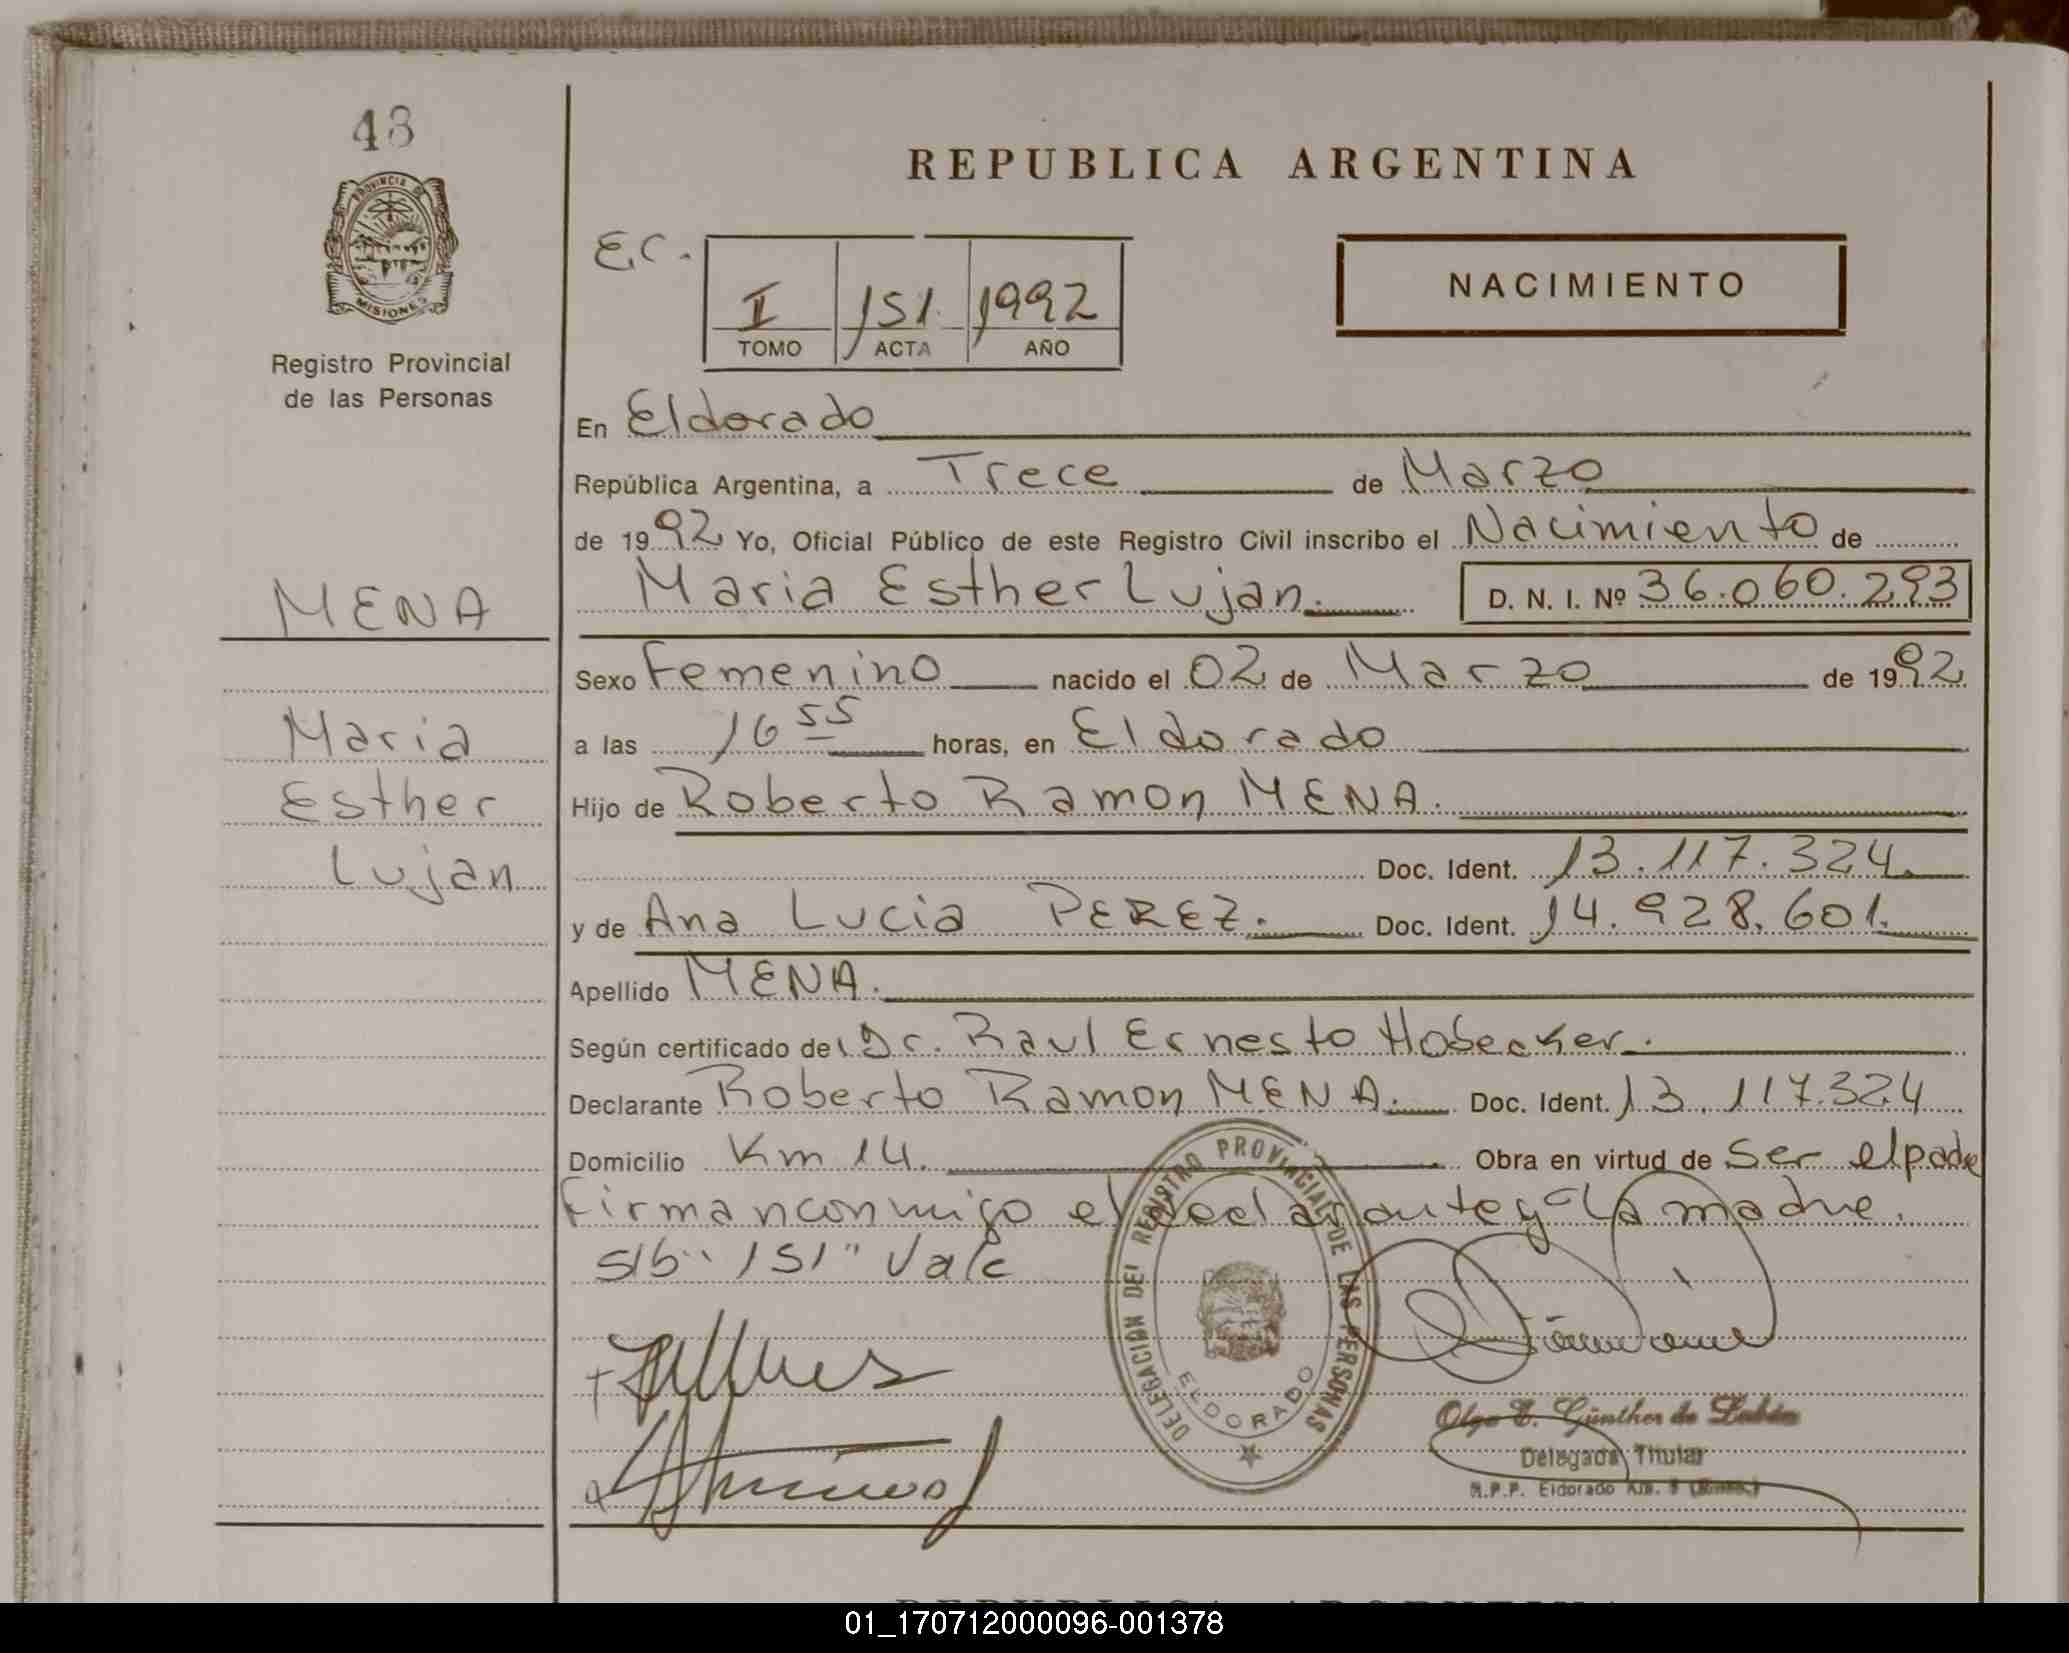 48
PROVINCIA DE
MISIONES
Registro Provincial
de las Personas
MENA
Maria
Esther
Lujan
REPUBLICA ARGENTINA
E.C.
I 151 1992
TOMO ACTA AÑO
NACIMIENTO
En Eldorado
República Argentina, a Trece de Marzo
de 1992 Yo, Oficial Público de este Registro Civil inscribo el Nacimiento de
Maria Esther Lujan. D. N. I. Nº 36.060.293
Sexo Femenino nacido el 02 de Marzo de 1992
a las 16 55 horas, en Eldorado
Hijo de Roberto Ramon MENA.
Doc. Ident. 13.117.324
y de Ana Lucia PEREZ. Doc. Ident. 14.928.601.
Apellido MENA.
Según certificado de Dr. Raul Ernesto Hobecker.
Declarante Roberto Ramon MENA. Doc. Ident. 13.117.324
Domicilio Km 14. Obra en virtud de ser el padre
Firman conmigo el declarante y la madre.
S/b "151" Vale
DELEGACION DEL REGISTRO PROVINCIAL DE LAS PERSONAS
ELDORADO
Olga E. Günther de
Delegada Titular
R.P.P. Eldorado Km.
REPUBLICA ARGENTINA
01_170712000096-001378